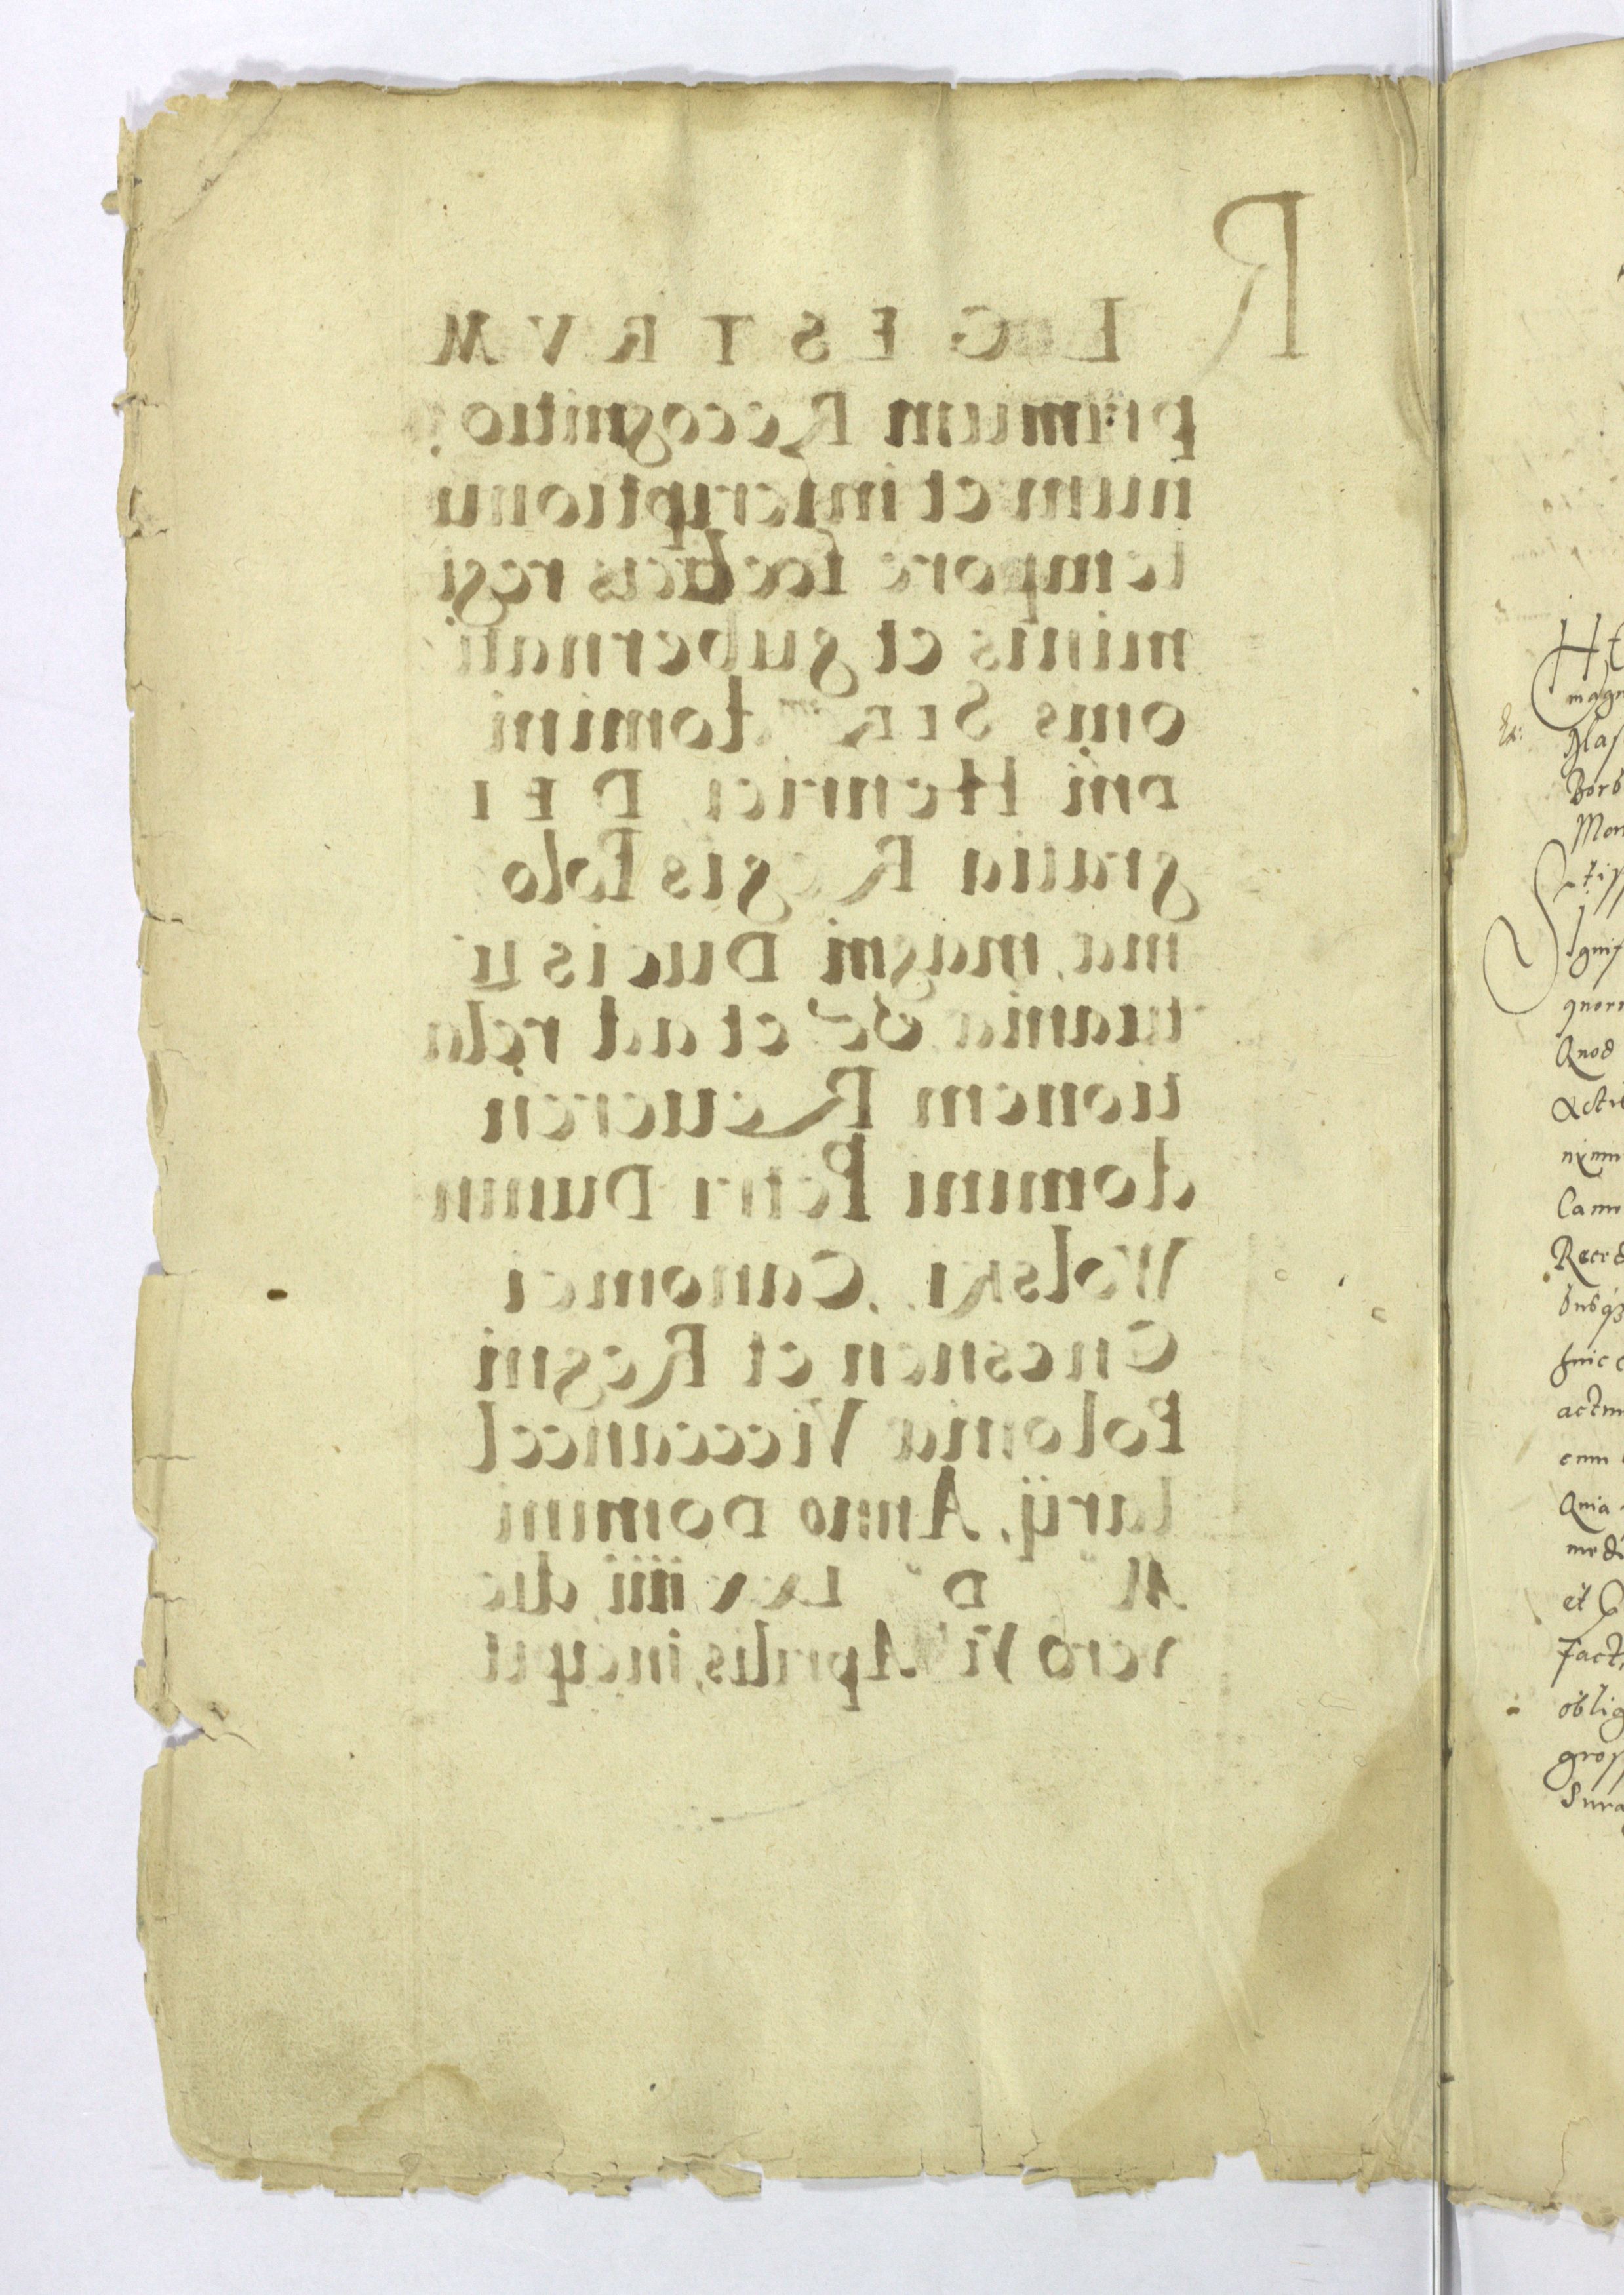 REGESTRVM
primum Recognitio
num et inscriptionu
tempore foelicis regi
minis et gubernati
onis SER domini
Dni Henrici DEI
gratia Regis Polo
niæ, magni Ducis Li
tuaniæ &c et ad rela
tionem Reueren
domini Petri Dunin
Wolski, Canonici
Gnesnen et Regni
Poloniæ Vicecancel
larij, Anno Domini
M D LXXiiii die
vero VI Aprilis, incipit
magn
Borb
Mon
Signif
quor
Quod
nxnm
Cann
Reced
actm
cum
Quia
medi
et
fact
oblig
gross